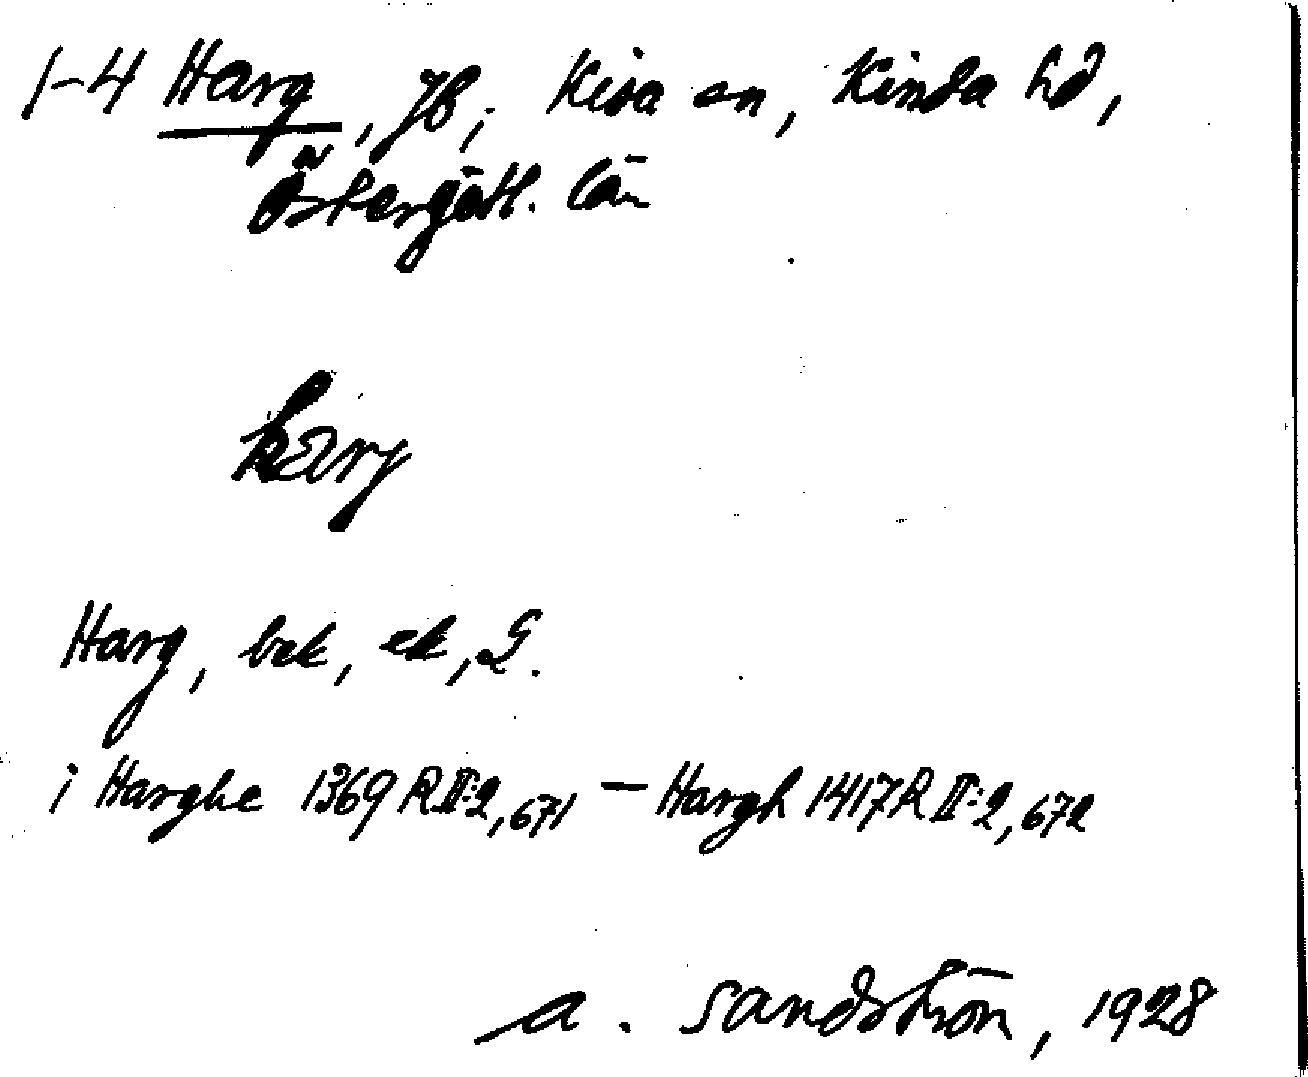 1-4 Harg, JB, Kisa sn, Kinda hd,
Östergötl. län
harj
Harg, bek, ek, G.
i Harghe 1369 R II:2, 671 — Hargh 1417 R II:2, 672
A. Sandström, 1928